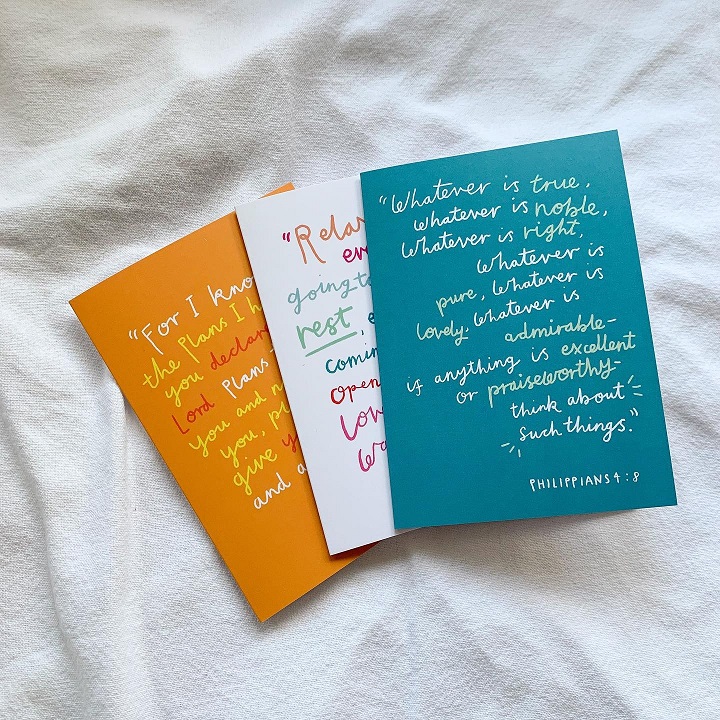 "For I kno
the plans I h
you declar
Lord Plans
you and n
you, pl
give y
and a
"Rela
ev
going to
rest, e
comin
open
lov
wa
"Whatever is true,
whatever is noble,
whatever is right,
whatever is
pure, whatever is
lovely. Whatever is
admirable–
if anything is excellent
or praiseworthy–
think about
such things."
PHILIPPIANS 4:8